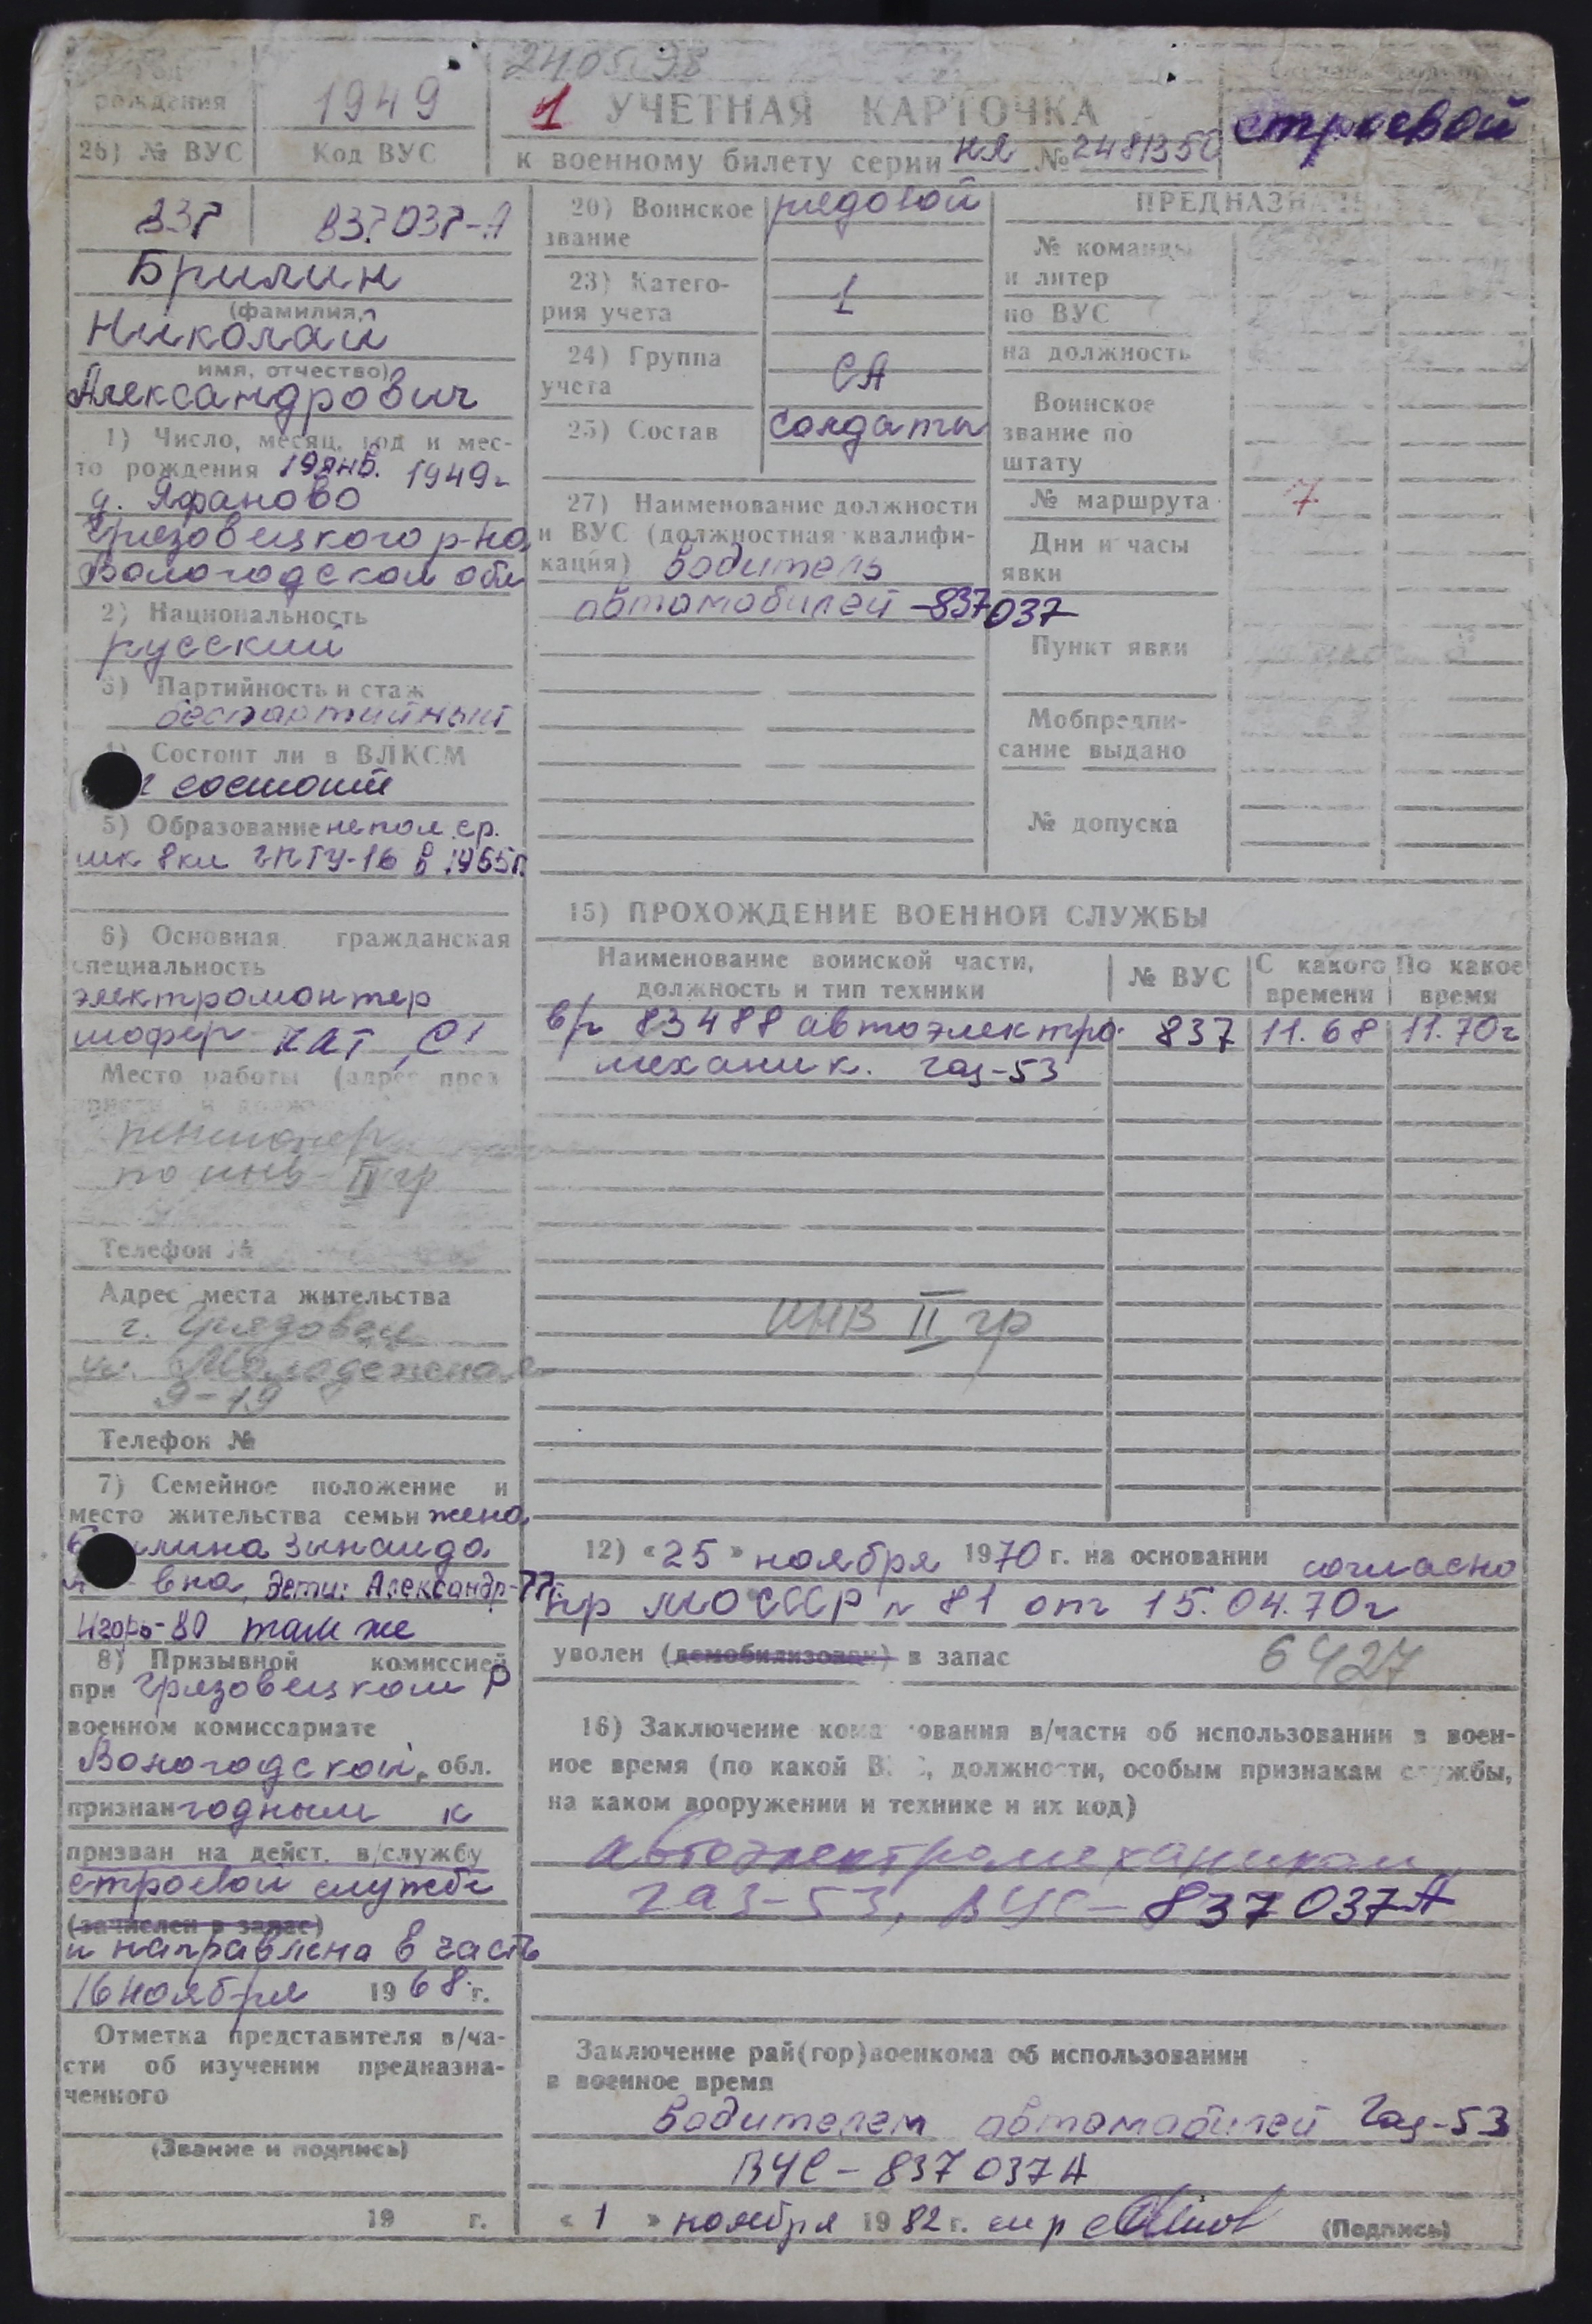 24.05.98
рождения 1949
1 УЧЕТНАЯ КАРТОЧКА
строевой
26) № ВУС Код ВУС
к военному билету серии НЯ № 2481350
837 837037-А
Брилин
(фамилия,
Николай
имя, отчество)
Александрович
1) Число, месяц, год и мес-
то рождения 19 янв. 1949г
д. Яфаново
Грязовецкого р-на
Вологодской обл
2) Национальность
русский
3) Партийность и стаж
беспартийный
Состоит ли в ВЛКСМ
состоит
5) Образование непол. ср.
шк 8кл ГПТУ-16 в 1965г.
6) Основная гражданская
специальность
электромонтер
шофер
Место работы
пенсионер
по инв- II гр
Телефон №
Адрес места жительства
г. Грязовец
ул. Молодежная
9-19
Телефон №
7) Семейное положение и
место жительства семьи жена
лина Зинаида
вна, дети: Александр-77
Игорь-80 там же
8) Призывной комиссией
при Грязовецком Р
военном комиссариате
Вологодской обл.
признан годным к
призван на дейст. в/службу
строевой службе
(зачислен в запас)
и направлена в часть
16 ноября 1968 г.
Отметка представителя в/ча-
сти об изучении предназна-
ченного
(Звание и подпись)
19 г.
20) Воинское рядовой
звание
23) Катего-
рия учета 1
24) Группа
учета СА
25) Состав солдаты
27) Наименование должности
и ВУС (должностная квалифи-
кация) водитель
автомобилей -837037
ПРЕДНАЗНАЧ
№ команды
и литер
по ВУС
на должность
Воинское
звание по
штату
№ маршрута 7
Дни и часы
явки
Пункт явки
Мобпредпи-
сание выдано
№ допуска
15) ПРОХОЖДЕНИЕ ВОЕННОЙ СЛУЖБЫ
Наименование воинской части, должность и тип техники № ВУС С какого времени По какое время
в/ч 83488 автоэлектро- 837 11.68 11.70г
механик. Газ-53
ИНВ II гр
12) «25» ноября 1970 г. на основании согласно
пр МО СССР № 81 от 15.04.70г
уволен (демобилизован) в запас
6427
16) Заключение кома ования в/части об использовании в воен-
ное время (по какой В , должности, особым признакам службы,
на каком вооружении и технике и их код)
автоэлектромехаником
газ-53, ВУС-837037А
Заключение рай(гор)военкома об использовании
в военное время
водителем автомобилей Газ-53
ВУС-837037А
«1» ноября 1982 г. (Подпись)